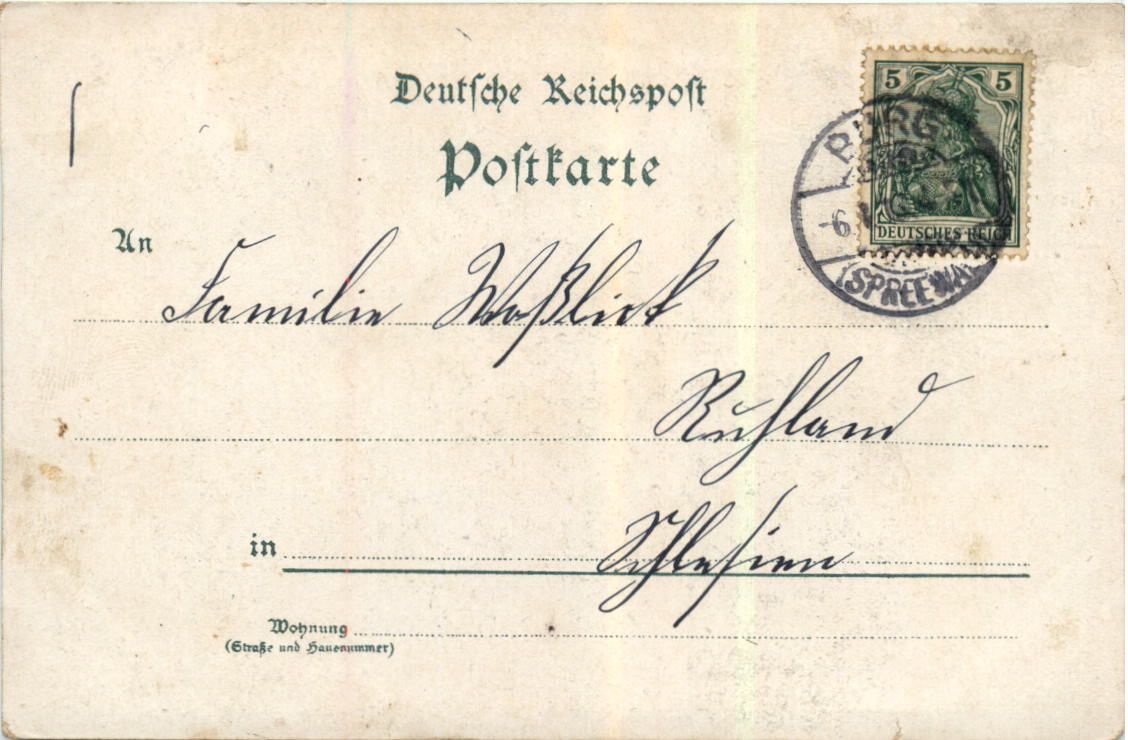 Deutsche Reichspost
Postkarte
5 5
DEUTSCHES REICH
BURG
-6.
(SPREEWALD)
An
Familie Woßlick
Ruhland
in Schlesien
Wohnung
(Straße und Hausnummer)